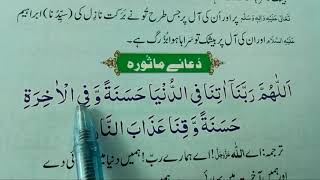 تَعَالٰی عَلَیْہِ وَاٰلِہٖ وَسَلَّم پر اور ان کی آل پر جس طرح تونے برکت نازل کی (سیّدنا) ابراہیم
عَلَیْہِ السَّلَام اور ان کی آل پر بیشک تو سراہا ہوا بزرگ ہے
دُعائے ماثورہ
اَللّٰهُمَّ رَبَّنَا اٰتِنَا فِی الدُّنْیَا حَسَنَةً وَّ فِی الْاٰخِرَةِ
حَسَنَةً وَّ قِنَا عَذَابَ النَّارِ
ترجمہ: اے اللہ عَزَّوَجَلَّ! اے ہمارے رب! ہمیں دنیا میں
دے اور ہمیں آخرت میں